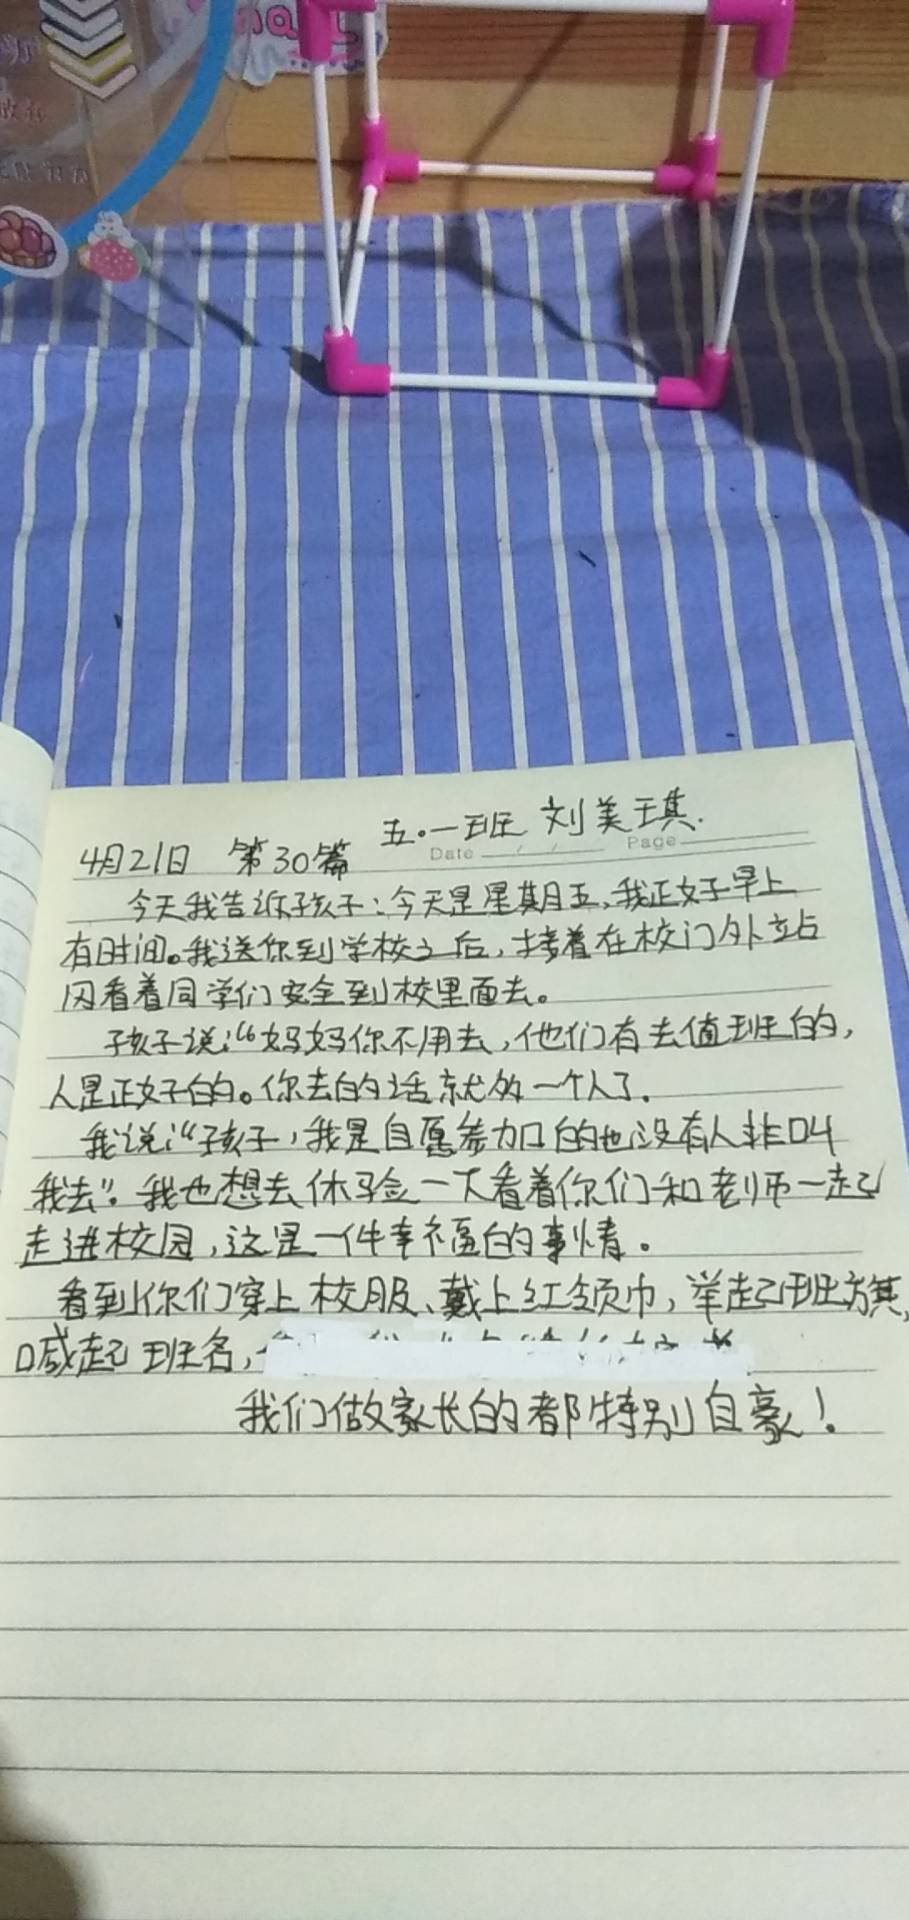 五。一班 刘美琪.
4月21日 第30篇
Date / / Page
今天我告诉孩子:今天是星期五,我正好早上
有时间。我送你到学校之后,接着在校门外站
岗看着同学们安全到校里面去。
孩子说:“妈妈你不用去,他们有去值班的,
人是正好的。你去的话就多一个人了.
我说:“孩子,我是自愿参加的也没有人非叫
我去”。我也想去体验一下看着你们和老师一起
走进校园,这是一件幸福的事情。
看到你们穿上校服、戴上红领巾,举起班旗,
喊起班名,
我们做家长的都特别自豪!